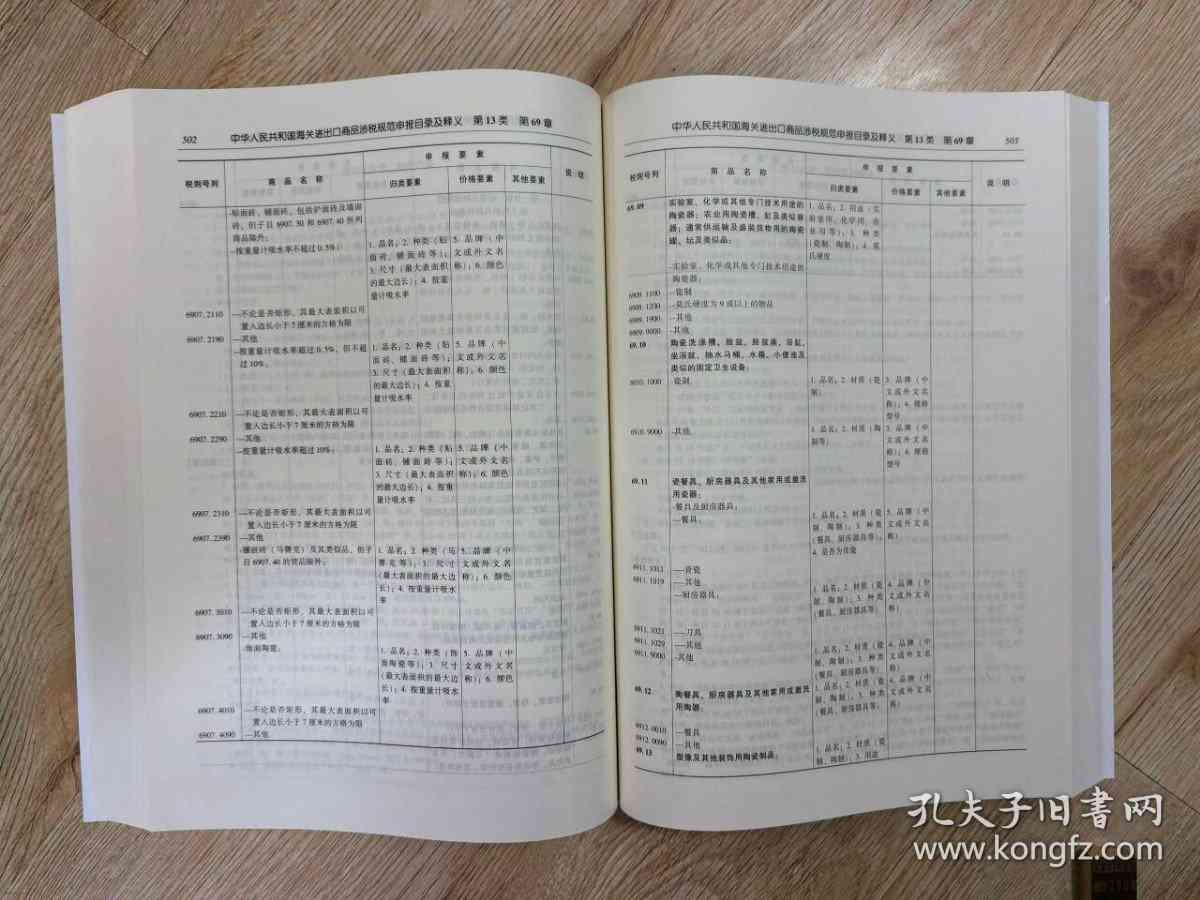 502 中华人民共和国海关进出口商品涉税规范申报目录及释义 第13类 第69章
税则号列 商品名称 申报要素 说明
归类要素 价格要素 其他要素
-贴面砖、铺面砖,包括炉面砖及墙面
砖,但子目6907.30和6907.40所列
商品除外:
--按重量计吸水率不超过0.5%: 1.品名;2.种类(贴 5.品牌(中
面砖、铺面砖等); 文或外文名
3.尺寸(最大表面积 称);6.颜色
的最大边长);4.按重
量计吸水率
6907.2110 ---不论是否矩形,其最大表面积以可
置入边长小于7厘米的方格为限
6907.2190 ---其他
--按重量计吸水率超过0.5%,但不超 1.品名;2.种类(贴 5.品牌(中
过10%: 面砖、铺面砖等); 文或外文名
3.尺寸(最大表面积 称);6.颜色
的最大边长);4.按重
量计吸水率
6907.2210 ---不论是否矩形,其最大表面积以可
置入边长小于7厘米的方格为限
6907.2290 ---其他
--按重量计吸水率超过10%: 1.品名;2.种类(贴 5.品牌(中
面砖、铺面砖等); 文或外文名
3.尺寸(最大表面积 称);6.颜色
的最大边长);4.按重
量计吸水率
6907.2310 ---不论是否矩形,其最大表面积以可
置入边长小于7厘米的方格为限
6907.2390 ---其他
-镶嵌砖(马赛克)及其类似品,但子 1.品名;2.种类(马 5.品牌(中
目6907.40的货品除外: 赛克等);3.尺寸 文或外文名
(最大表面积的最大边 称);6.颜色
长);4.按重量计吸水
率
6907.3010 ---不论是否矩形,其最大表面积以可
置入边长小于7厘米的方格为限
6907.3090 ---其他
-饰面陶瓷: 1.品名;2.种类(饰 5.品牌(中
面陶瓷等);3.尺寸 文或外文名
(最大表面积的最大边 称);6.颜色
长);4.按重量计吸水
率
6907.4010 ---不论是否矩形,其最大表面积以可
置入边长小于7厘米的方格为限
6907.4090 ---其他
中华人民共和国海关进出口商品涉税规范申报目录及释义 第13类 第69章 503
税则号列 商品名称 申报要素 说明
归类要素 价格要素 其他要素
69.09 实验室、化学或其他专门技术用途的 1.品名;2.用途(实
陶瓷器;农业用陶瓷槽、缸及类似容 验室用、化学用、农
器;通常供运输及盛装货物用的陶瓷 业用等);3.种类
罐、坛及类似品: (瓷制、陶制);4.莫
氏硬度
-实验室、化学或其他专门技术用途的
陶瓷器:
6909.1100 --瓷制
6909.1200 --莫氏硬度为9或以上的物品
6909.1900 --其他
6909.9000 -其他
69.10 陶瓷洗涤槽、脸盆、脸盆座、浴缸、
坐浴盆、抽水马桶、水箱、小便池及
类似的固定卫生设备:
6910.1000 -瓷制 1.品名;2.材质(瓷 3.品牌(中
制) 文或外文名
称);4.规格
型号
6910.9000 -其他 1.品名;2.材质(陶 3.品牌(中
制等) 文或外文名
称);4.规格
型号
69.11 瓷餐具、厨房器具及其他家用或盥洗
用瓷器:
-餐具及厨房器具:
---餐具: 1.品名;2.材质(瓷 5.品牌(中
制、陶制);3.种类 文或外文名
(餐具、厨房器具等); 称)
4.是否为骨瓷
6911.1011 ----骨瓷
6911.1019 ----其他
---厨房器具: 1.品名;2.材质(瓷 4.品牌(中
制、陶制);3.种类 文或外文名
(餐具、厨房器具等) 称)
6911.1021 ----刀具
6911.1029 ----其他
6911.9000 -其他 1.品名;2.材质(瓷 4.品牌(中
制、陶制);3.种类 文或外文名
(餐具、厨房器具等) 称)
69.12 陶餐具、厨房器具及其他家用或盥洗 1.品名;2.材质(瓷 4.品牌(中
用陶器: 制、陶制);3.种类 文或外文名
(餐具、厨房器具等) 称)
6912.0010 ---餐具
6912.0090 ---其他
69.13 塑像及其他装饰用陶瓷制品: 1.品名;2.材质(瓷
制、陶制);3.用途
孔夫子旧书网
www.kongfz.com